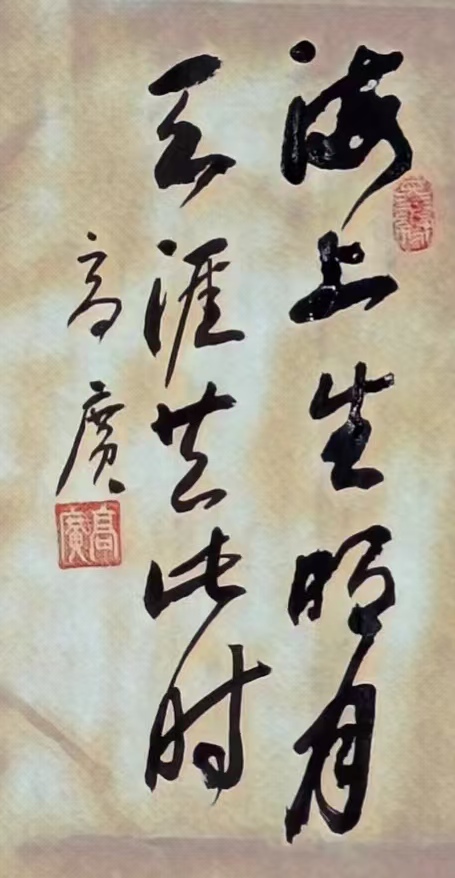 海上生明月
天涯共此时
高广
高廣